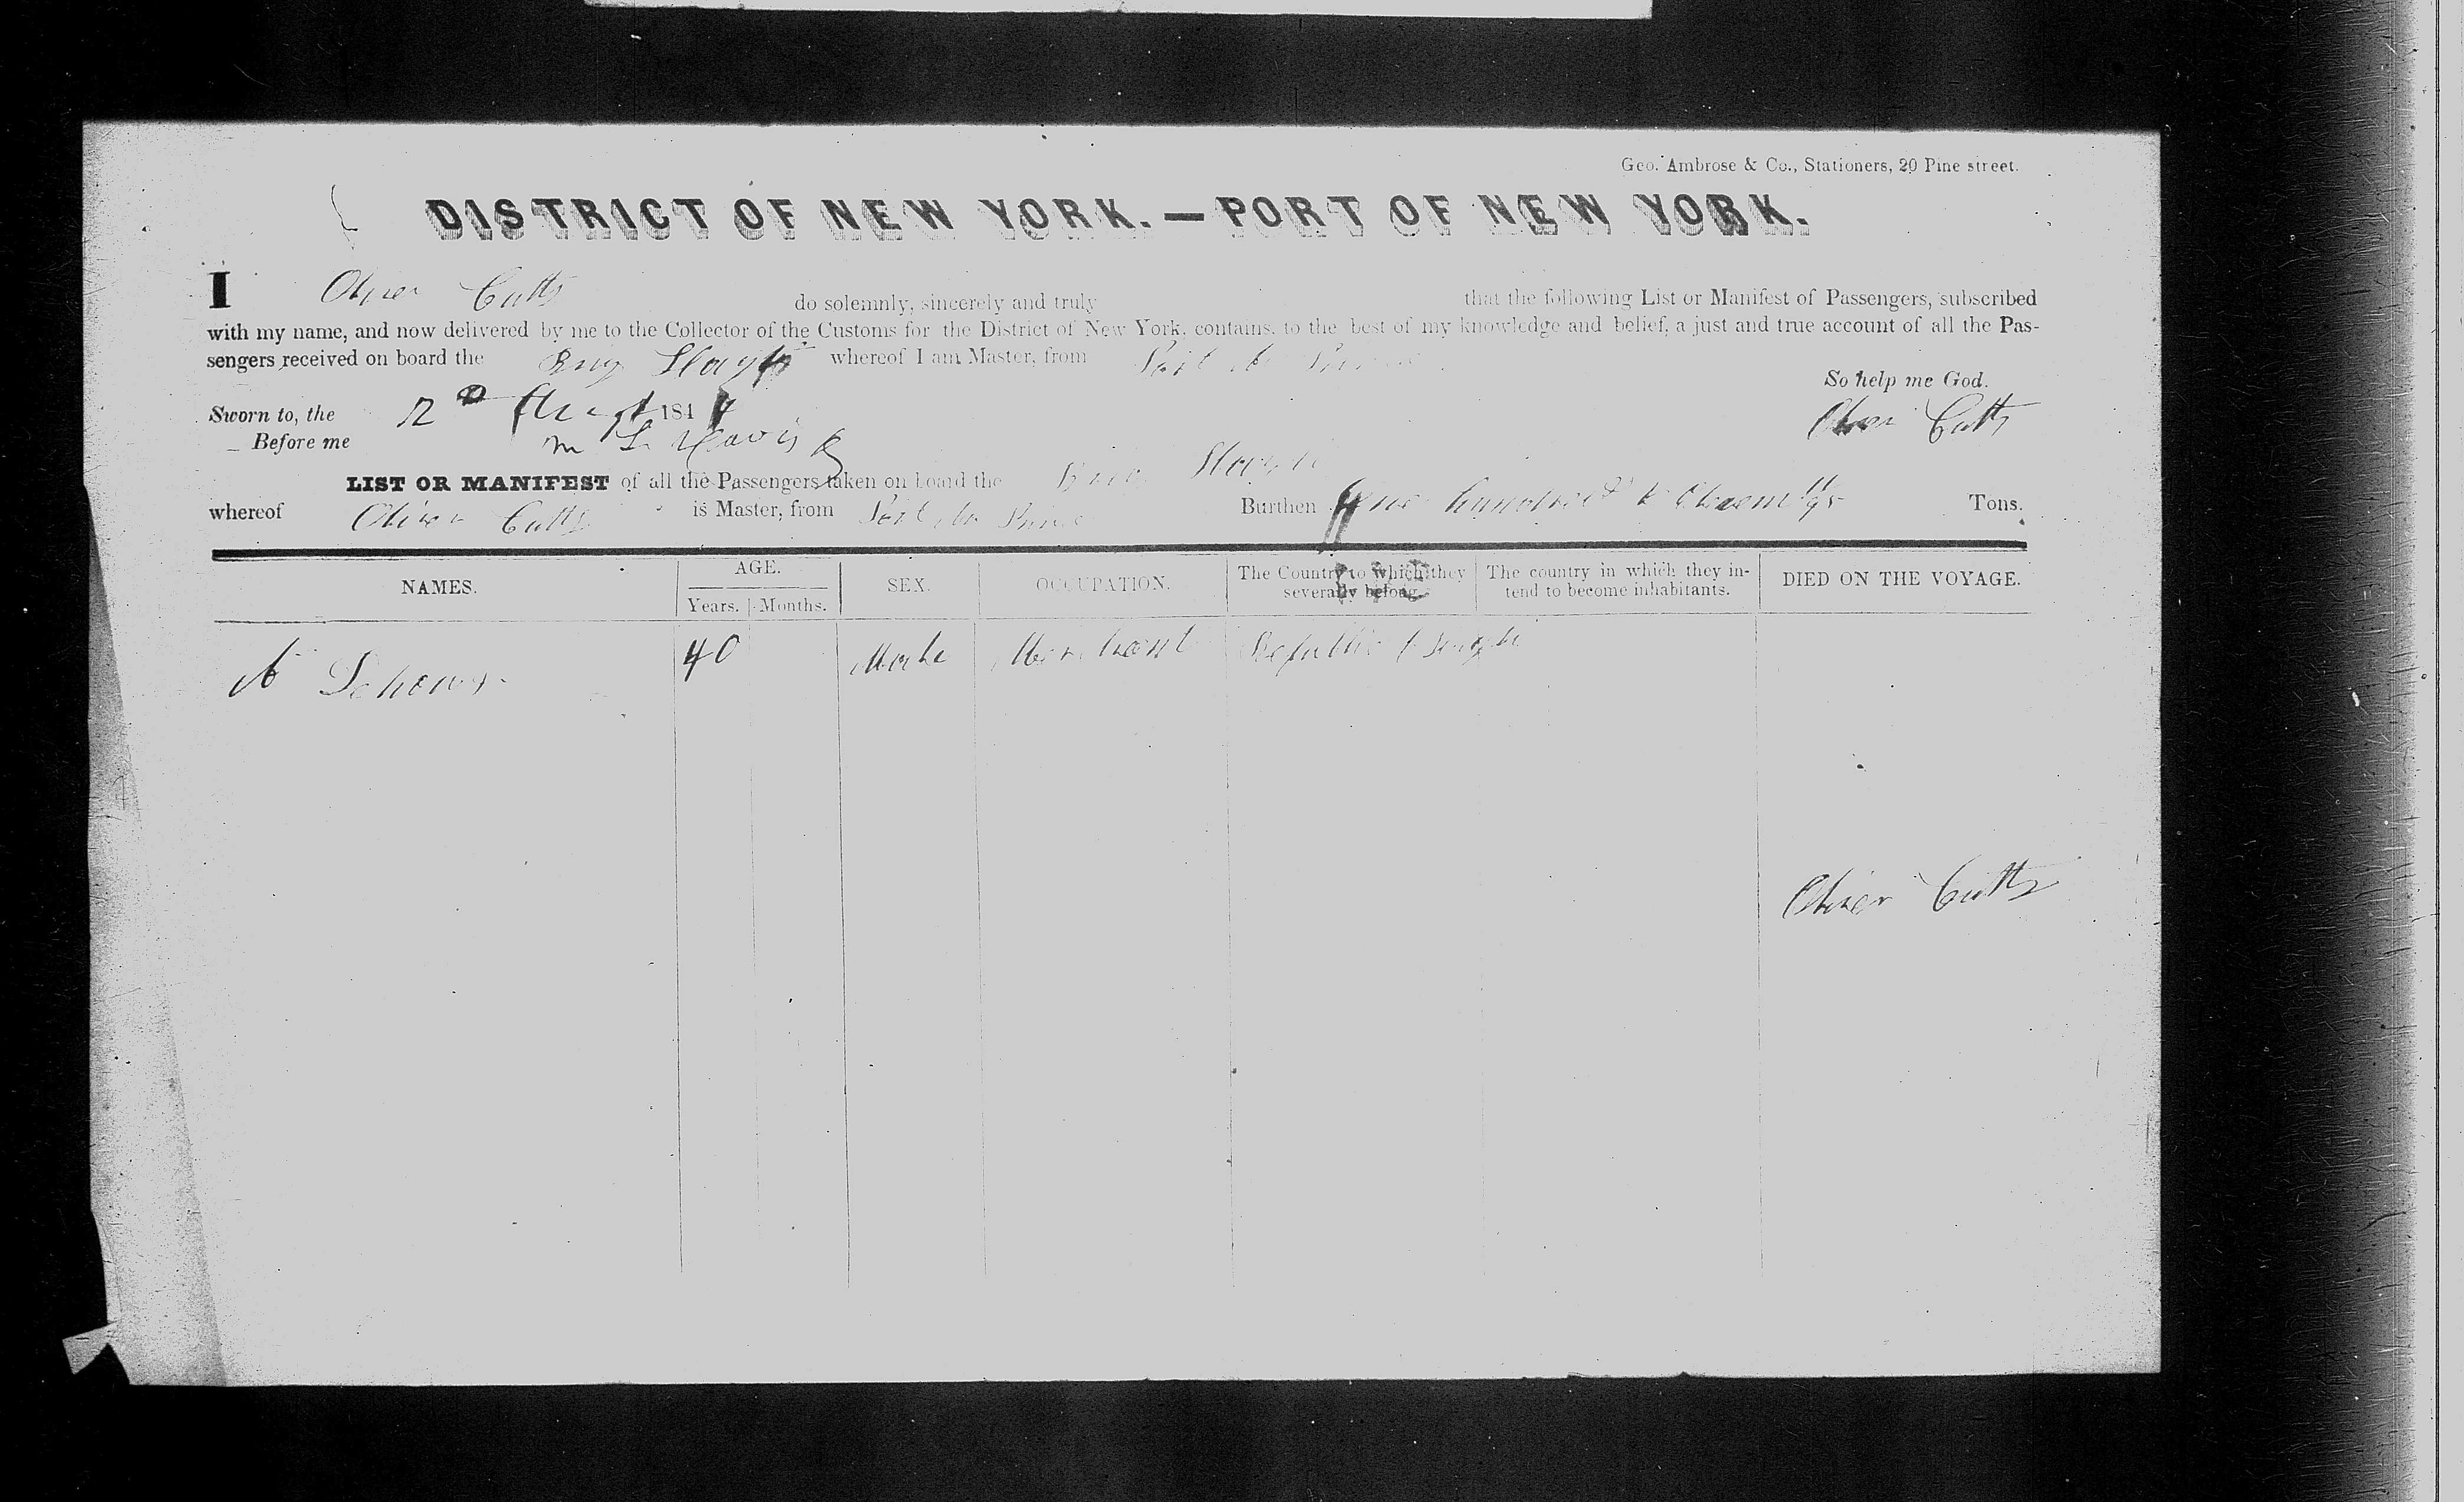 Geo. Ambrose & Co., Stationers, 20 Pine street.
DISTRICT OF NEW YORK.—PORT OF NEW YORK.
I Oliver Cutts do solemnly, sincerely and truly that the following List or Manifest of Passengers, subscribed
with my name, and now delivered by me to the Collector of the Customs for the District of New York, contains, to the best of my knowledge and belief, a just and true account of all the Pas-
sengers received on board the Brig whereof I am Master, from Port au Prince
So help me God.
Sworn to, the 12 184
Oliver Cutts
Before me
LIST OR MANIFEST of all the Passengers taken on board the Brig
whereof Oliver Cutts is Master, from Port au Prince Burthen hundred & Tons.
NAMES. AGE. SEX. OCCUPATION. The Country to which they severally belong. The country in which they in-tend to become inhabitants. DIED ON THE VOYAGE.
Years. Months.
40 Male Merchant Republic
Oliver Cutts